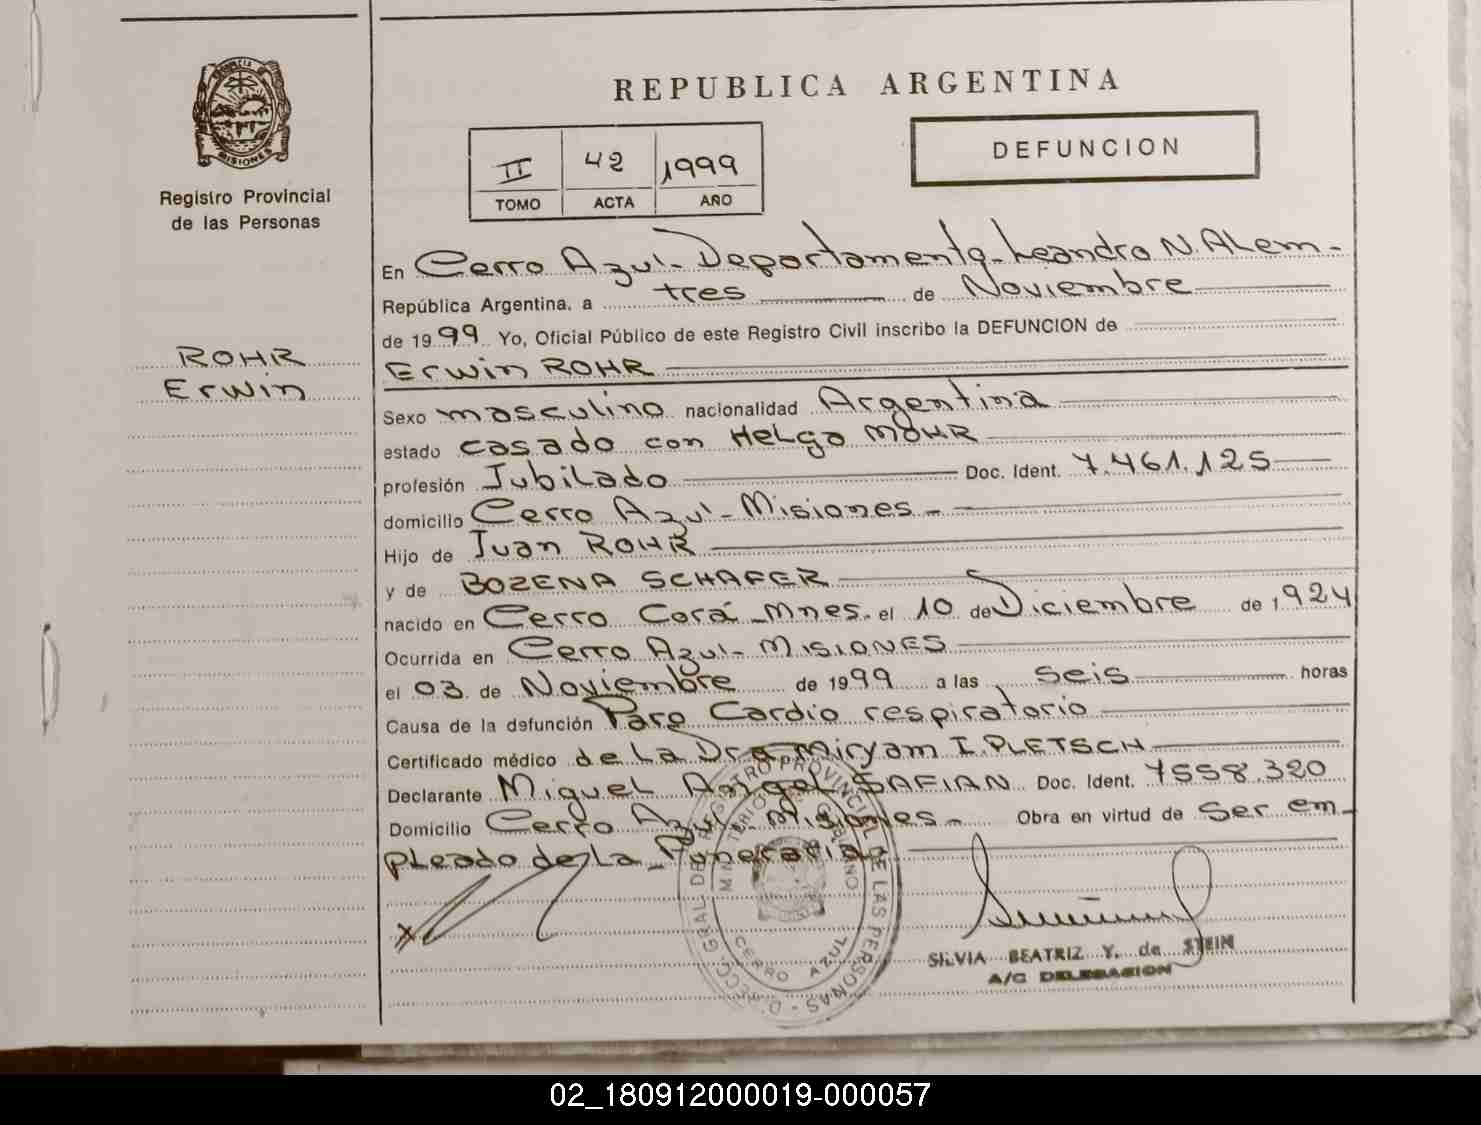 PROVINCIA DE MISIONES
Registro Provincial
de las Personas
ROHR
Erwin
REPUBLICA ARGENTINA
II 42 1999
TOMO ACTA AÑO
DEFUNCION
En Cerro Azul - Departamento - Leandro N. ALem -
República Argentina, a tres de Noviembre
de 1999 Yo, Oficial Público de este Registro Civil inscribo la DEFUNCION de
Erwin ROHR
Sexo masculino nacionalidad Argentina
estado casado con HeLga MOHR
profesión JubiLado Doc. Ident. 7.461.125
domicilio Cerro Azul - Misiones -
Hijo de Juan ROHR
y de BOZENA SCHAFER
nacido en Cerro Corá - Mnes. el 10 de Diciembre de 1924
Ocurrida en Cerro Azul - MISIONES
el 03 de Noviembre de 1999 a las seis horas
Causa de la defunción Paro Cardio respiratorio
Certificado médico de La Dra Miryam I. PLETSCH
Declarante MigueL Angel SAFIAN Doc. Ident. 7558.320
Domicilio Cerro Azul - Misiones - Obra en virtud de Ser em-
pLeado de La Funeraria
X
DIRECC. GRAL. DEL REGISTRO PROVINCIAL DE LAS PERSONAS -
MINISTERIO DE GOBIERNO
CERRO AZUL
SILVIA BEATRIZ Y. de STEIN
A/C DELEGACION
02_180912000019-000057